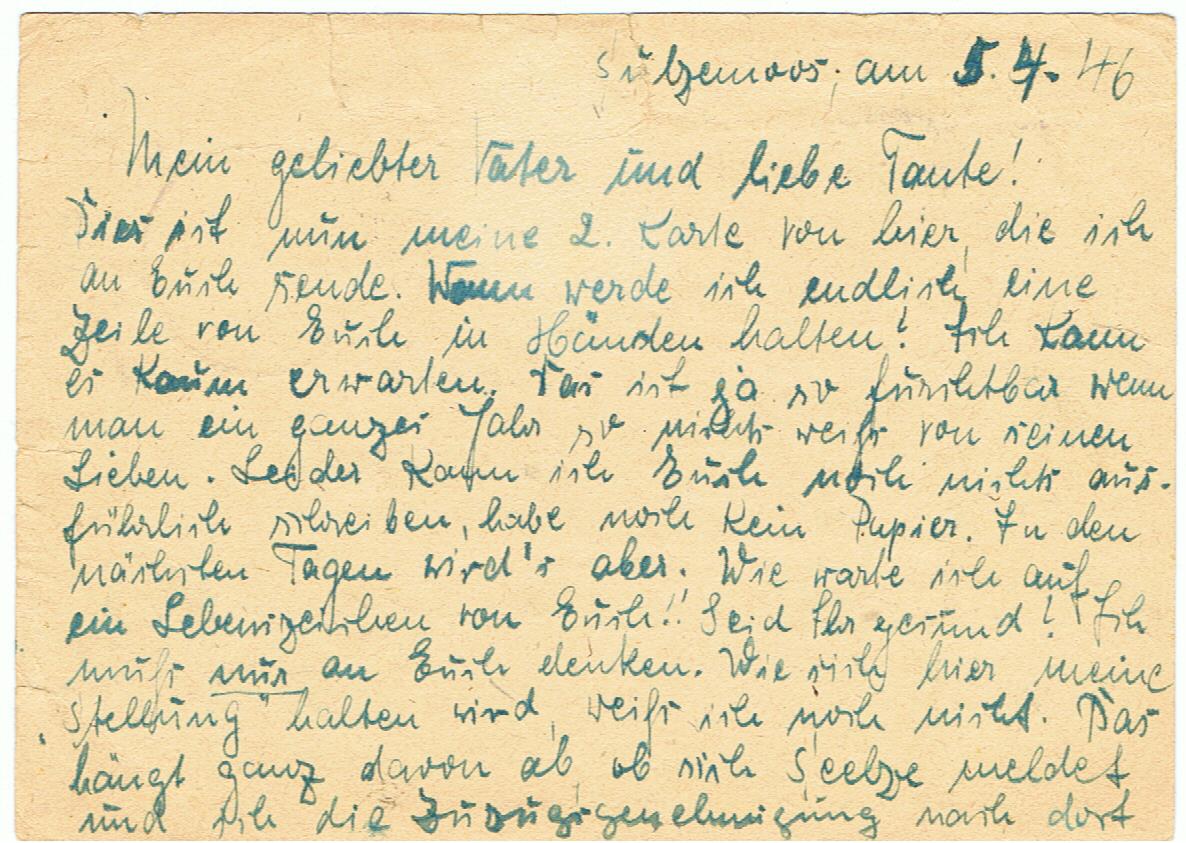 Sulzemoos, am 5.4.46
Mein geliebter Vater und liebe Tante!
Dies ist nun meine 2. Karte von hier, die ich
an Euch sende. Wann werde ich endlich eine
Zeile von Euch in Händen halten! Ich kann
es kaum erwarten. Das ist ja so furchtbar wenn
man ein ganzes Jahr so nichts weiß von seinen
Lieben. Leider kann ich Euch noch nichts aus-
führlich schreiben, habe noch kein Papier. In den
nächsten Tagen wird's aber. Wie warte ich auf
ein Lebenszeichen von Euch!! Seid Ihr gesund! Ich
muß nur an Euch denken. Wie sich hier meine
„Stellung" halten wird, weiß ich noch nicht. Das
hängt ganz davon ab, ob sich Seelze meldet
und ich die Zuzugsgenehmigung nach dort